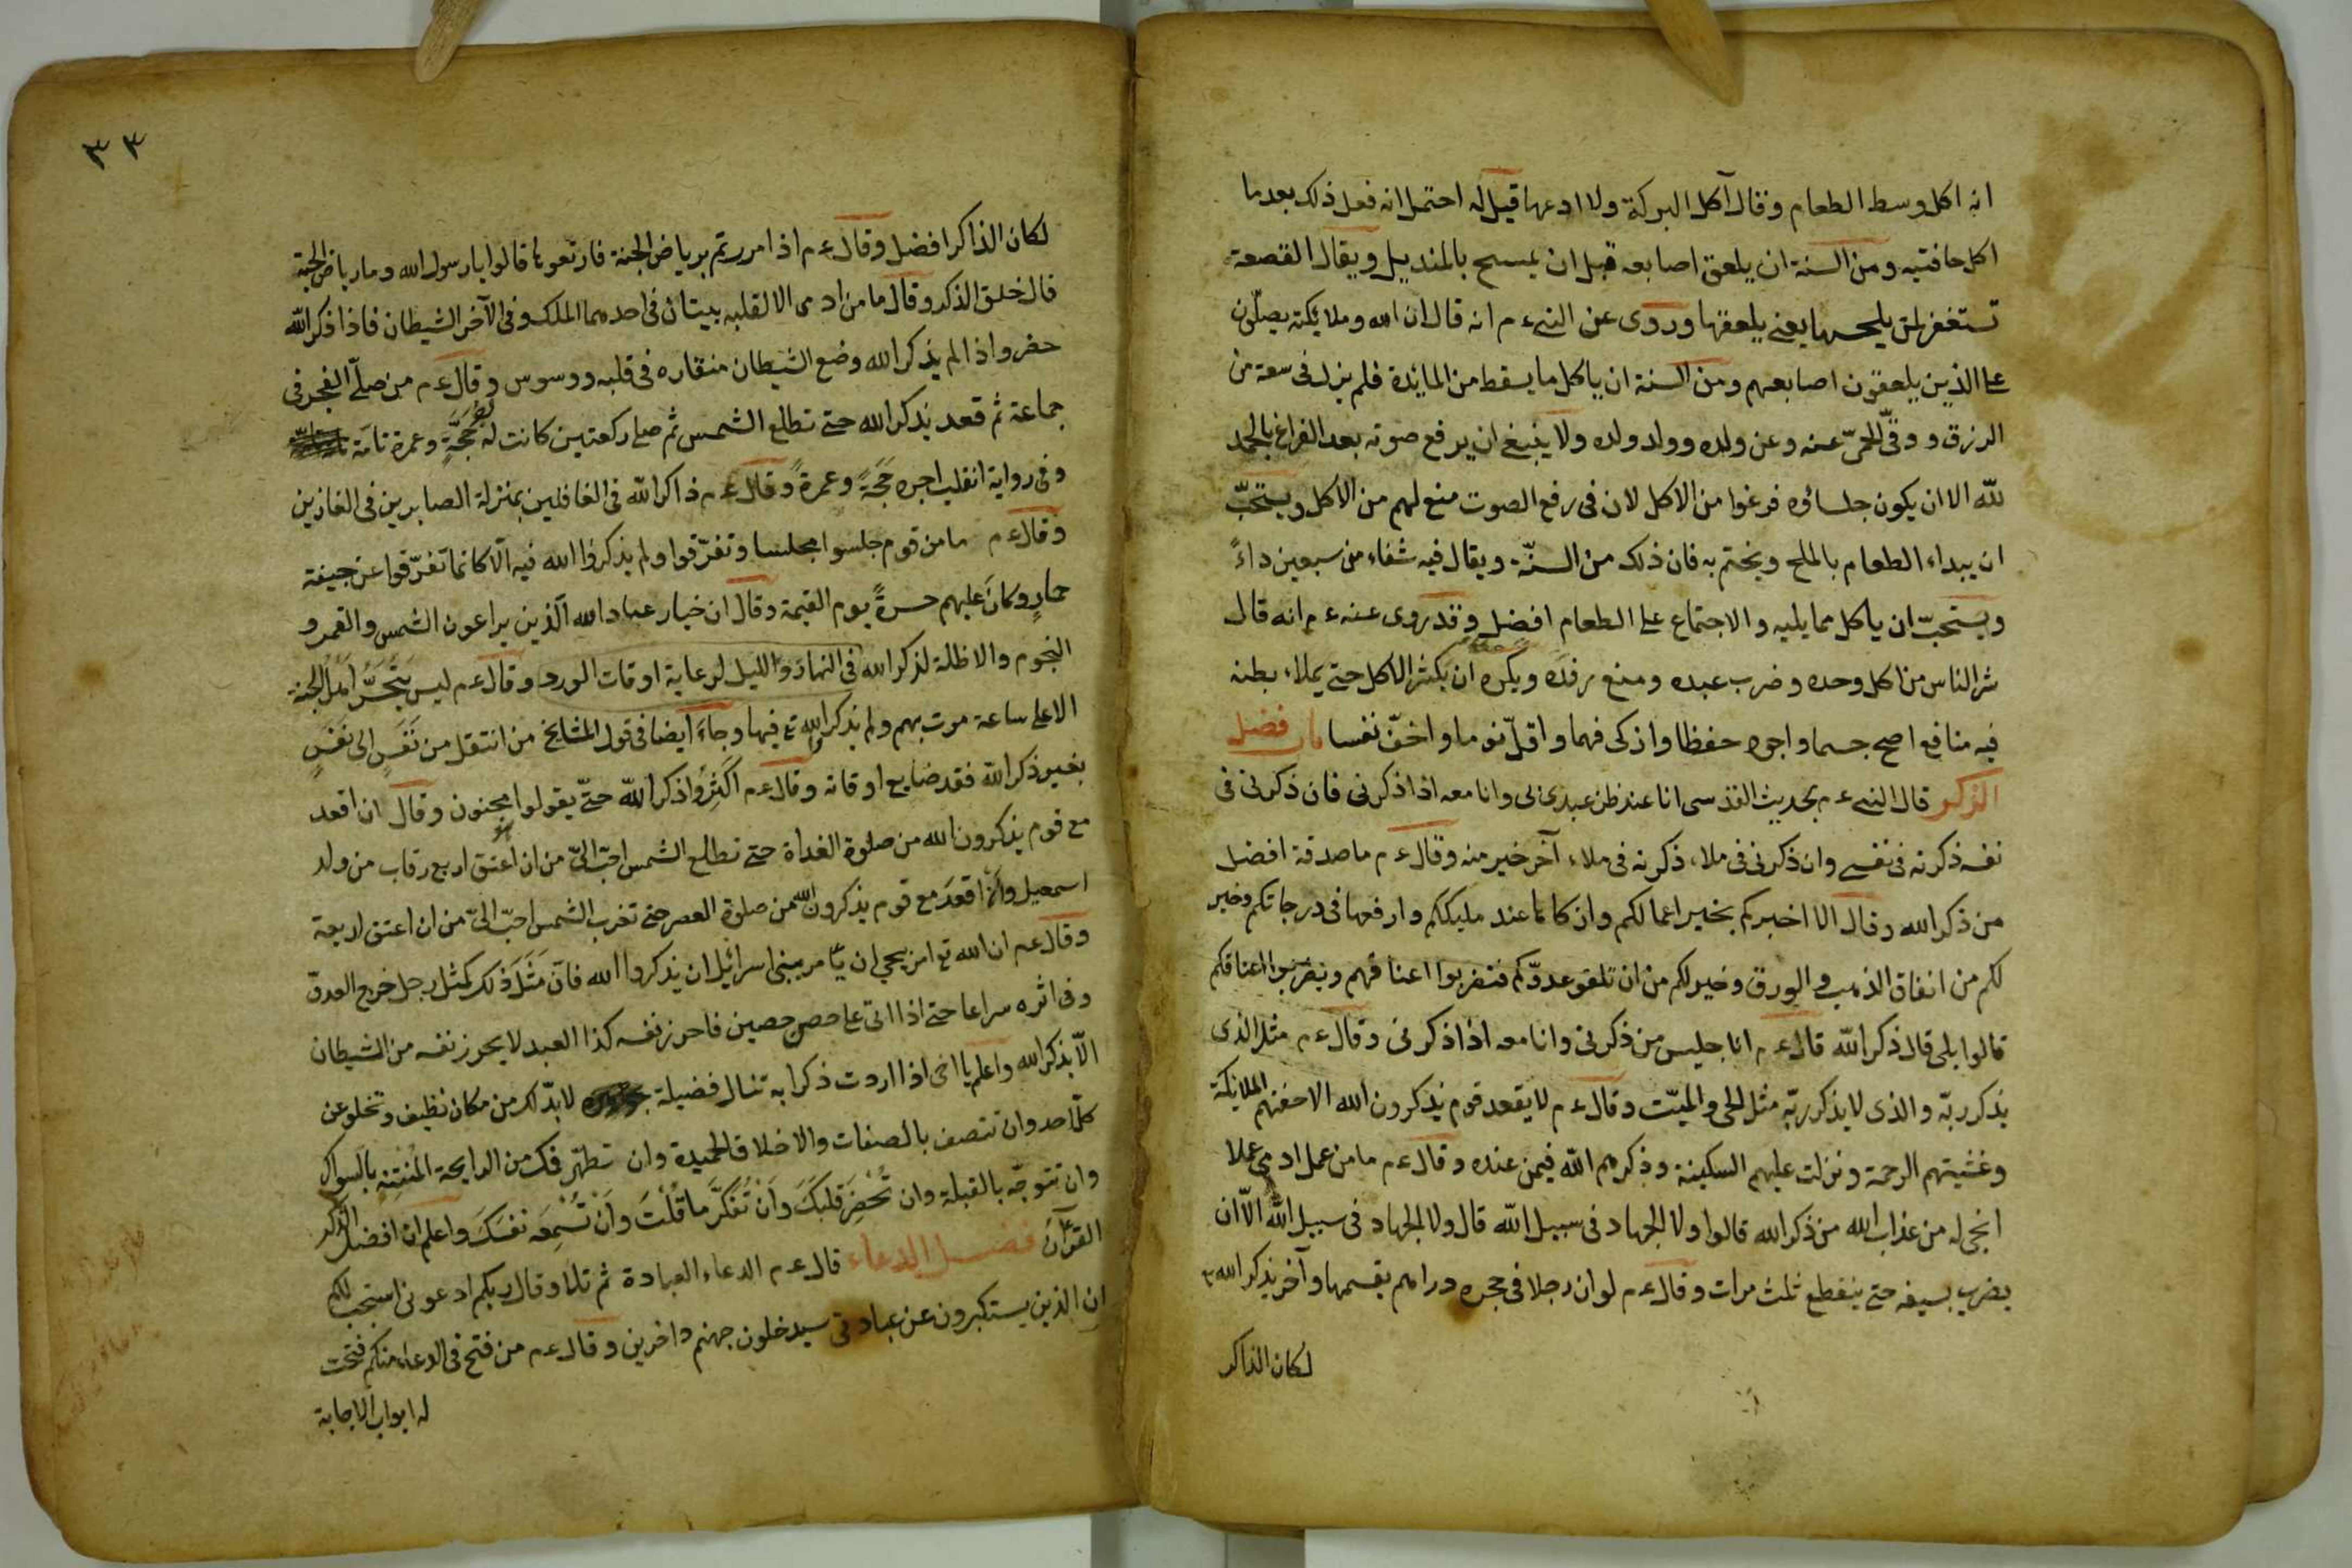 انه اكل وسط الطعام وقال آكل البركة ولا ادعها قيل له احتمل انه فعل ذلك بعد ما
اكل حافتيه ومن السنة ان يلعق اصابعه قبل ان يمسح بالمنديل ويقال القصعة
تستغفر لمن يلحسها يعنى يلعقها وروى عن النبى ء م انه قال ان الله وملائكته يصلّون
على الذين يلعقون اصابعهم ومن السنة ان ياكل ما يسقط من المائدة فلم يزل فى سعة من
الرزق و وقّى الحمق عنه وعن ولده وولد ولده ولا ينبغى ان يرفع صوته بعد الفراغ بالحمد
للّه الا ان يكون جلساؤه فرغوا من الاكل لان فى رفع الصوت منع لهم من الاكل ويستحبّ
ان يبداء الطعام بالملح ويختم به فان ذلك من السنّة ويقال فيه شفاء من سبعين داءً
ويستحبّ ان ياكل مما يليه والاجتماع على الطعام افضل وقد روى عنه ء م انه قال
شر الناس من اكل وحده وضرب عبده ومنع رفده ويكره ان يكثر الاكل حتى يملاء بطنه
فيه منافع اصح جسما واجود حفظا وازكى فهما واقلّ نوما واخفّ نفسا باب فضل
الذكر قال النبى ء م بحديث القدسى انا عند ظن عبدى بى وانا معه اذا ذكرنى فان ذكرنى فى
نفسه ذكرته فى نفسى وان ذكرنى فى ملاء ذكرته فى ملاء آخر خير منه وقال ء م ما صدقة افضل
من ذكر الله وقال الا اخبركم بخير اعمالكم وازكاها عند مليككم وارفعها فى درجاتكم وخير
لكم من انفاق الذهب والورق وخير لكم من ان تلقو عدوّكم فتضربوا اعناقهم ويضربوا اعناقكم
قالوا بلى قال ذكر الله قال ء م انا جليس من ذكرنى وانا معه اذا ذكرنى وقال ء م مثل الذى
يذكر ربّه والذى لا يذكر ربّه مثل الحى والميّت وقال ء م لا يقعد قوم يذكرون الله الا حفتهم الملائكة
وغشيتهم الرحمة ونزلت عليهم السكينة وذكرهم اللّه فيمن عنده وقال ء م ما من عمل ادمى عملا
انجى له من عذاب الله من ذكر الله قالوا ولا الجهاد فى سبيل اللّه قال ولا الجهاد فى سبيل اللّه الّا ان
يضرب بسيفه حتى ينقطع ثلث مرات وقال ء م لو ان رجلا فى حجره دراهم يقسمها وآخر يذكر الله
لكان الذاكر
٣٣
لكان الذاكر افضل وقال ء م اذا مررتم برياض الجنة فارتعوا قالوا يا رسول الله وما رياض الجنة
قال خلق الذكر وقال ما من ادمى الا لقلبه بيتان فى احدهما الملك وفى الآخر الشيطان فاذا ذكر اللّه
حفر واذا لم يذكر الله وضع الشيطان منقاره فى قلبه ووسوس وقال ء م من صلّى الفجر فى
جماعة ثم قعد يذكر الله حتى تطلع الشمس ثم صلى ركعتين كانت له كحَجّةٍ وعمرة تامّة
وفى رواية انقلب اجره حَجّةً وعمرةً وقال ء م ذاكر اللّه فى الغافلين بمنزلة الصابرين فى الغازين
وقال ء م ما من قوم جلسوا مجلسا وتفرّقوا ولم يذكروا الله فيه الّا كانما تفرّقوا عن جيفة
حمارٍ وكان عليهم حسرةً يوم القيمة وقال ان خيار عباد الله الّذين يراعون الشمس والقمر و
النجوم والاظلة لذكر الله فى النهار والليل لرعاية اوقات الورد وقال ء م ليس يتحسّر اهل الجنة
الا على ساعة مرت بهم ولم يذكر الله تع فيها وجاء ايضا فى قول المشايخ من انتقل من نَفَسٍ الى نفَسٍ
بغير ذكر اللّه فقد ضايع اوقاته وقال ء م اكْثِرُوا ذكر اللّه حتّى يقولوا مجنون وقال ان اقعد
مع قوم يذكرون الله من صلوة الغداة حتى تطلع الشمس احبّ الىّ من ان اعتق اربع رقاب من ولد
اسمعيل وان اقعد مع قوم يذكرون الله من صلوة العصر حتى تغرب الشمس احبّ الىّ من ان اعتق اربعة
وقال ء م ان الله تع امر يحيى ان يامر ببنى اسرائيل ان يذكروا الله فانّ مَثَلَ ذلك كمثل رجل خرج العدوّ
وفى اثره سراعا حتى اذا اتى على حصن حصين فاحرز نفسه كذا العبد لا يحرز نفسه من الشيطان
الّا بذكر الله واعلم يا اخى اذا اردت ذكرا به تنال فضيلة لا بدّ لك من مكان نظيف وتخلو عن
كلّ احد وان تتصف بالصفات والاخلاق الحميدة وان تطهّر فمك من الرايحة المُنْتِنَةِ بالسواك
وان تتوجّه بالقبلة وان تُحْضِرَ قلبَكَ وَاَنْ تُفَكَّرَ مَا قُلْتَ وَاَنْ تُسْمِعَه نفسَكَ واعلم ان افضل الذكر
القرآن فضل الدعاء قال ء م الدعاء العبادة ثم تلا وقال ربكم ادعونى استجب لكم
ان الذين يستكبرون عن عبادتى سيدخلون جهنم داخرين وقال ء م من فتح فى الدعاء منكم فتحت
له ابواب الاجابة